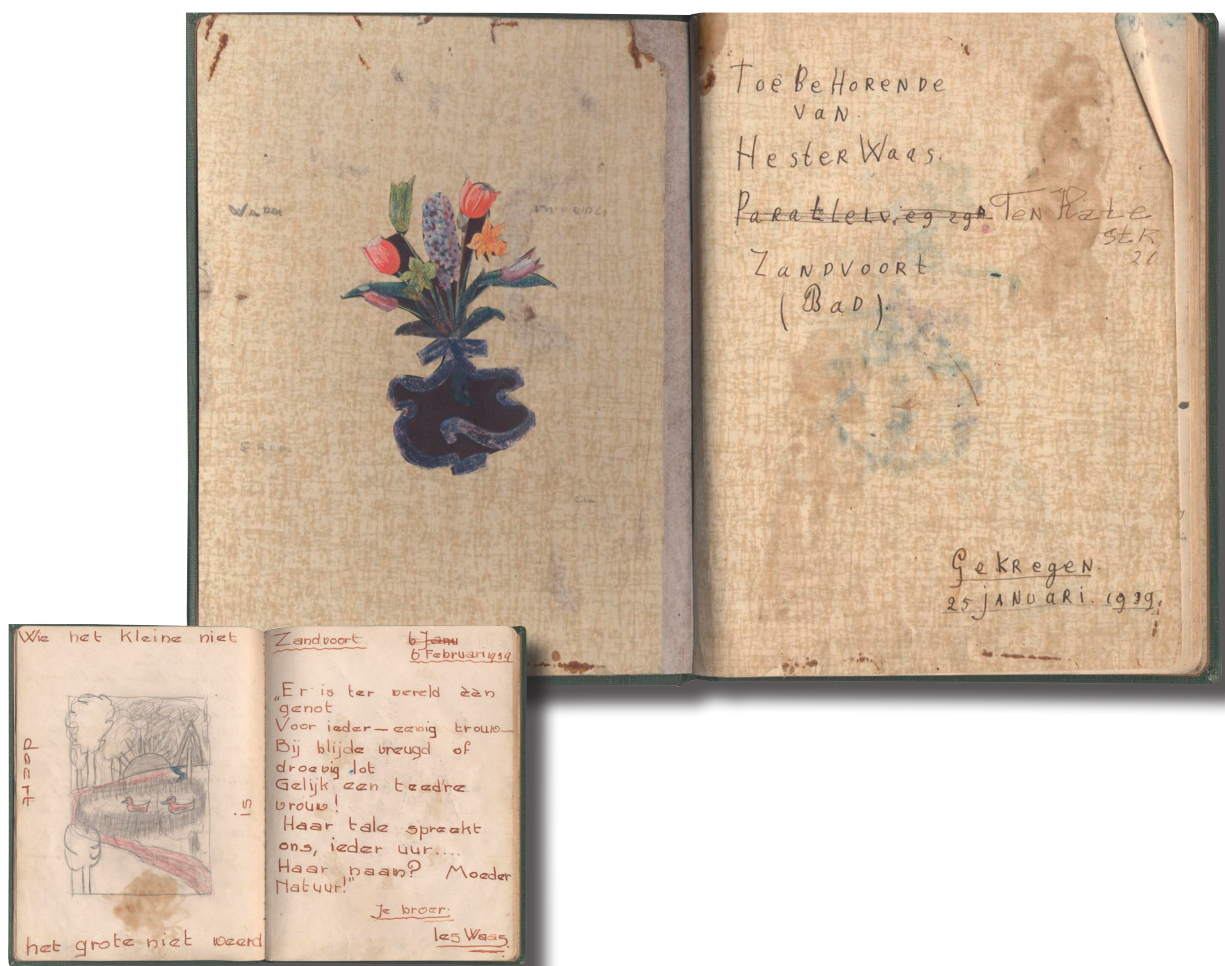 ToëBeHORENDE
VAN.
Hester Waas.
Parallelweg zgn. Ten Kate
stR
20
ZANDVOORT
(BAD).
GeKRegeN.
25 JANUARI. 1939.
Wie het kleine niet
eert
is
het grote niet weerd
Zandvoort 6 Janu
6 Februari 1939
„Er is ter wereld èèn
genot
Voor ieder — eewig trouw —
Bij blijde vreugd of
droevig lot
Gelijk een teed're
vrouw!
Haar tale spreekt
ons, ieder uur....
Haar naam? Moeder
Natuur!"
Je broer.
Ies Waas.